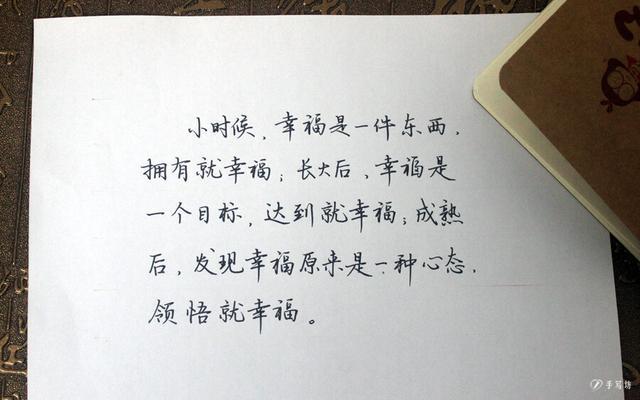 小时候，幸福是一件东西，
拥有就幸福；长大后，幸福是
一个目标，达到就幸福；成熟
后，发现幸福原来是一种心态，
领悟就幸福。
手写坊